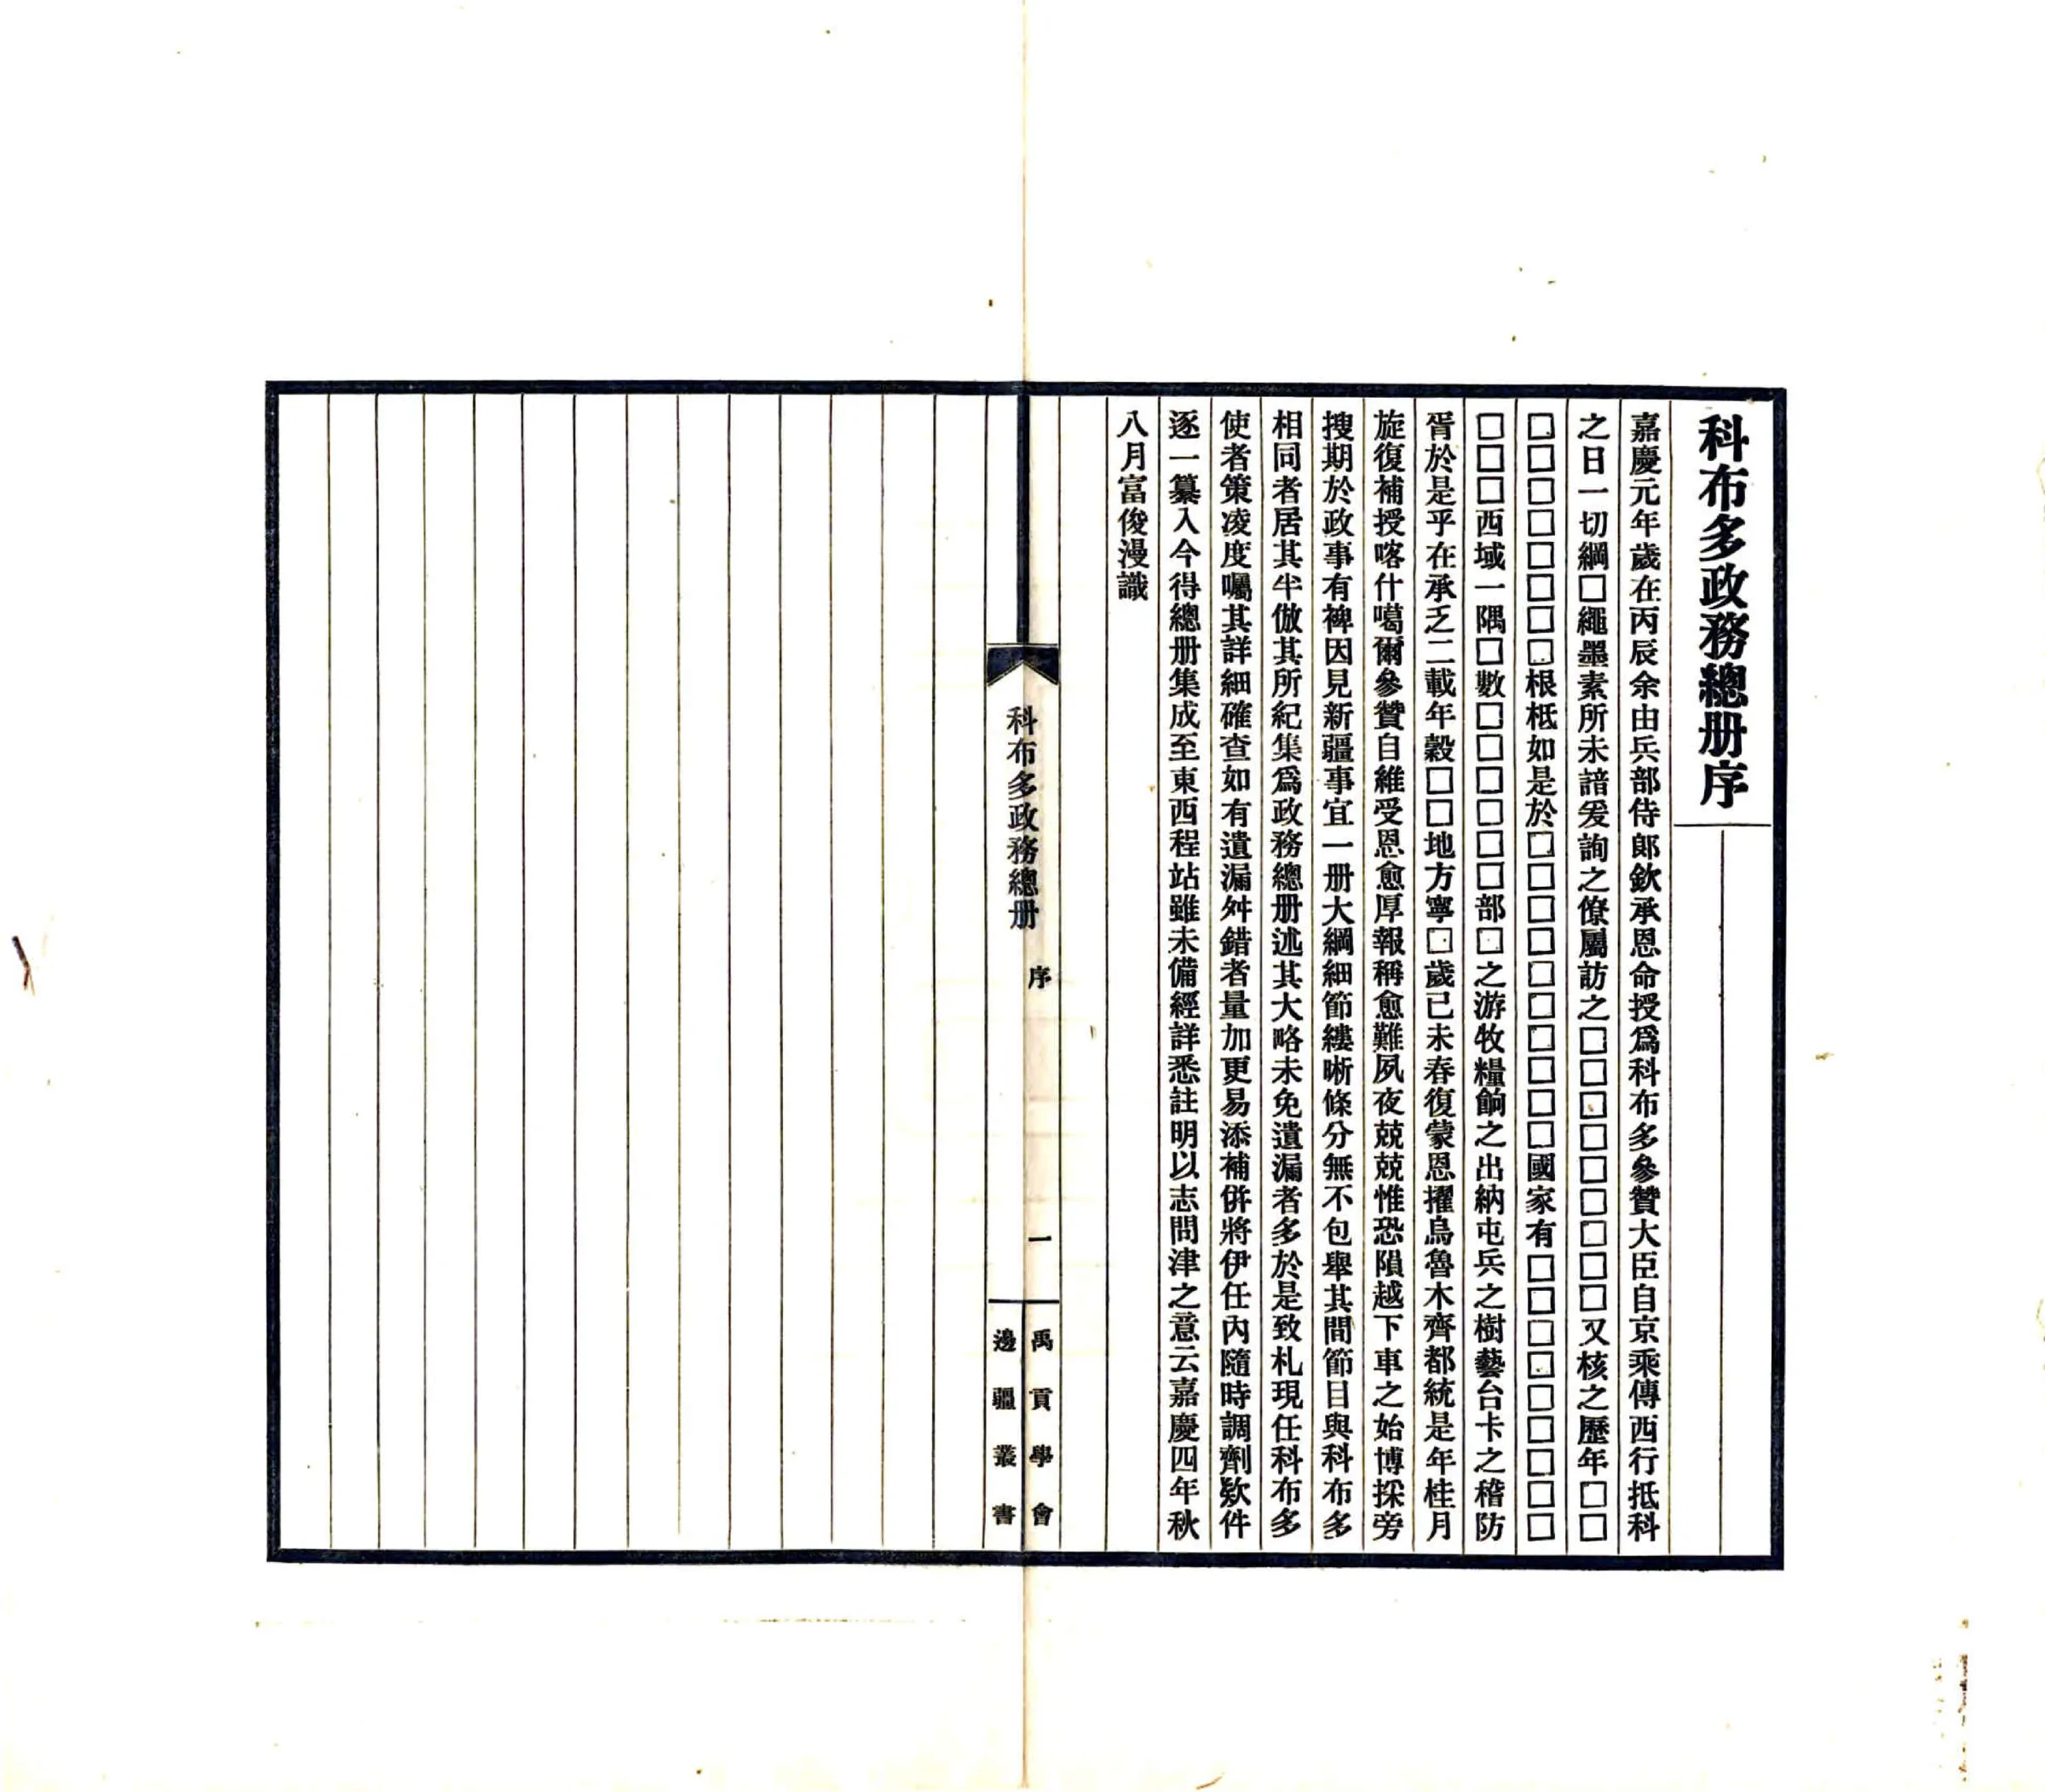 科布多政務總册序
嘉慶元年歲在丙辰余由兵部侍郞欽承恩命授爲科布多參贊大臣自京乘傳西行抵科
之日一切綱□繩墨素所未諳爰詢之僚屬訪之□□□□□□□□□又核之歷年□□
□□□□□□□□根柢如是於□□□□□□□□□□國家有□□□□□□□□□
□□□西域一隅□數□□□□□□部□之游牧糧餉之出納屯兵之樹藝台卡之稽防
胥於是乎在承乏二載年穀□□地方寧□歲已未春復蒙恩擢烏魯木齊都統是年桂月
旋復補授喀什噶爾參贊自維受恩愈厚報稱愈難夙夜兢兢惟恐隕越下車之始博採旁
搜期於政事有裨因見新疆事宜一册大綱細節縷晰條分無不包舉其間節目與科布多
相同者居其半倣其所紀集爲政務總册述其大略未免遺漏者多於是致札現任科布多
使者策凌度囑其詳細確查如有遺漏舛錯者量加更易添補併將伊任內隨時調劑欵件
逐一纂入今得總册集成至東西程站雖未備經詳悉註明以志問津之意云嘉慶四年秋
八月富俊漫識
科布多政務總册
序
一
禹貢學會
邊疆叢書